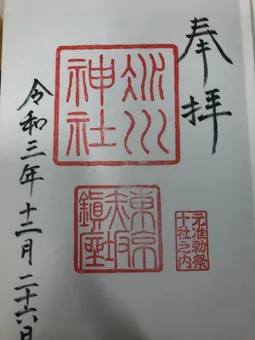 奉拝
氷川神社
東京赤坂鎮座
元准勅祭
十社之内
令和三年十二月二十六日